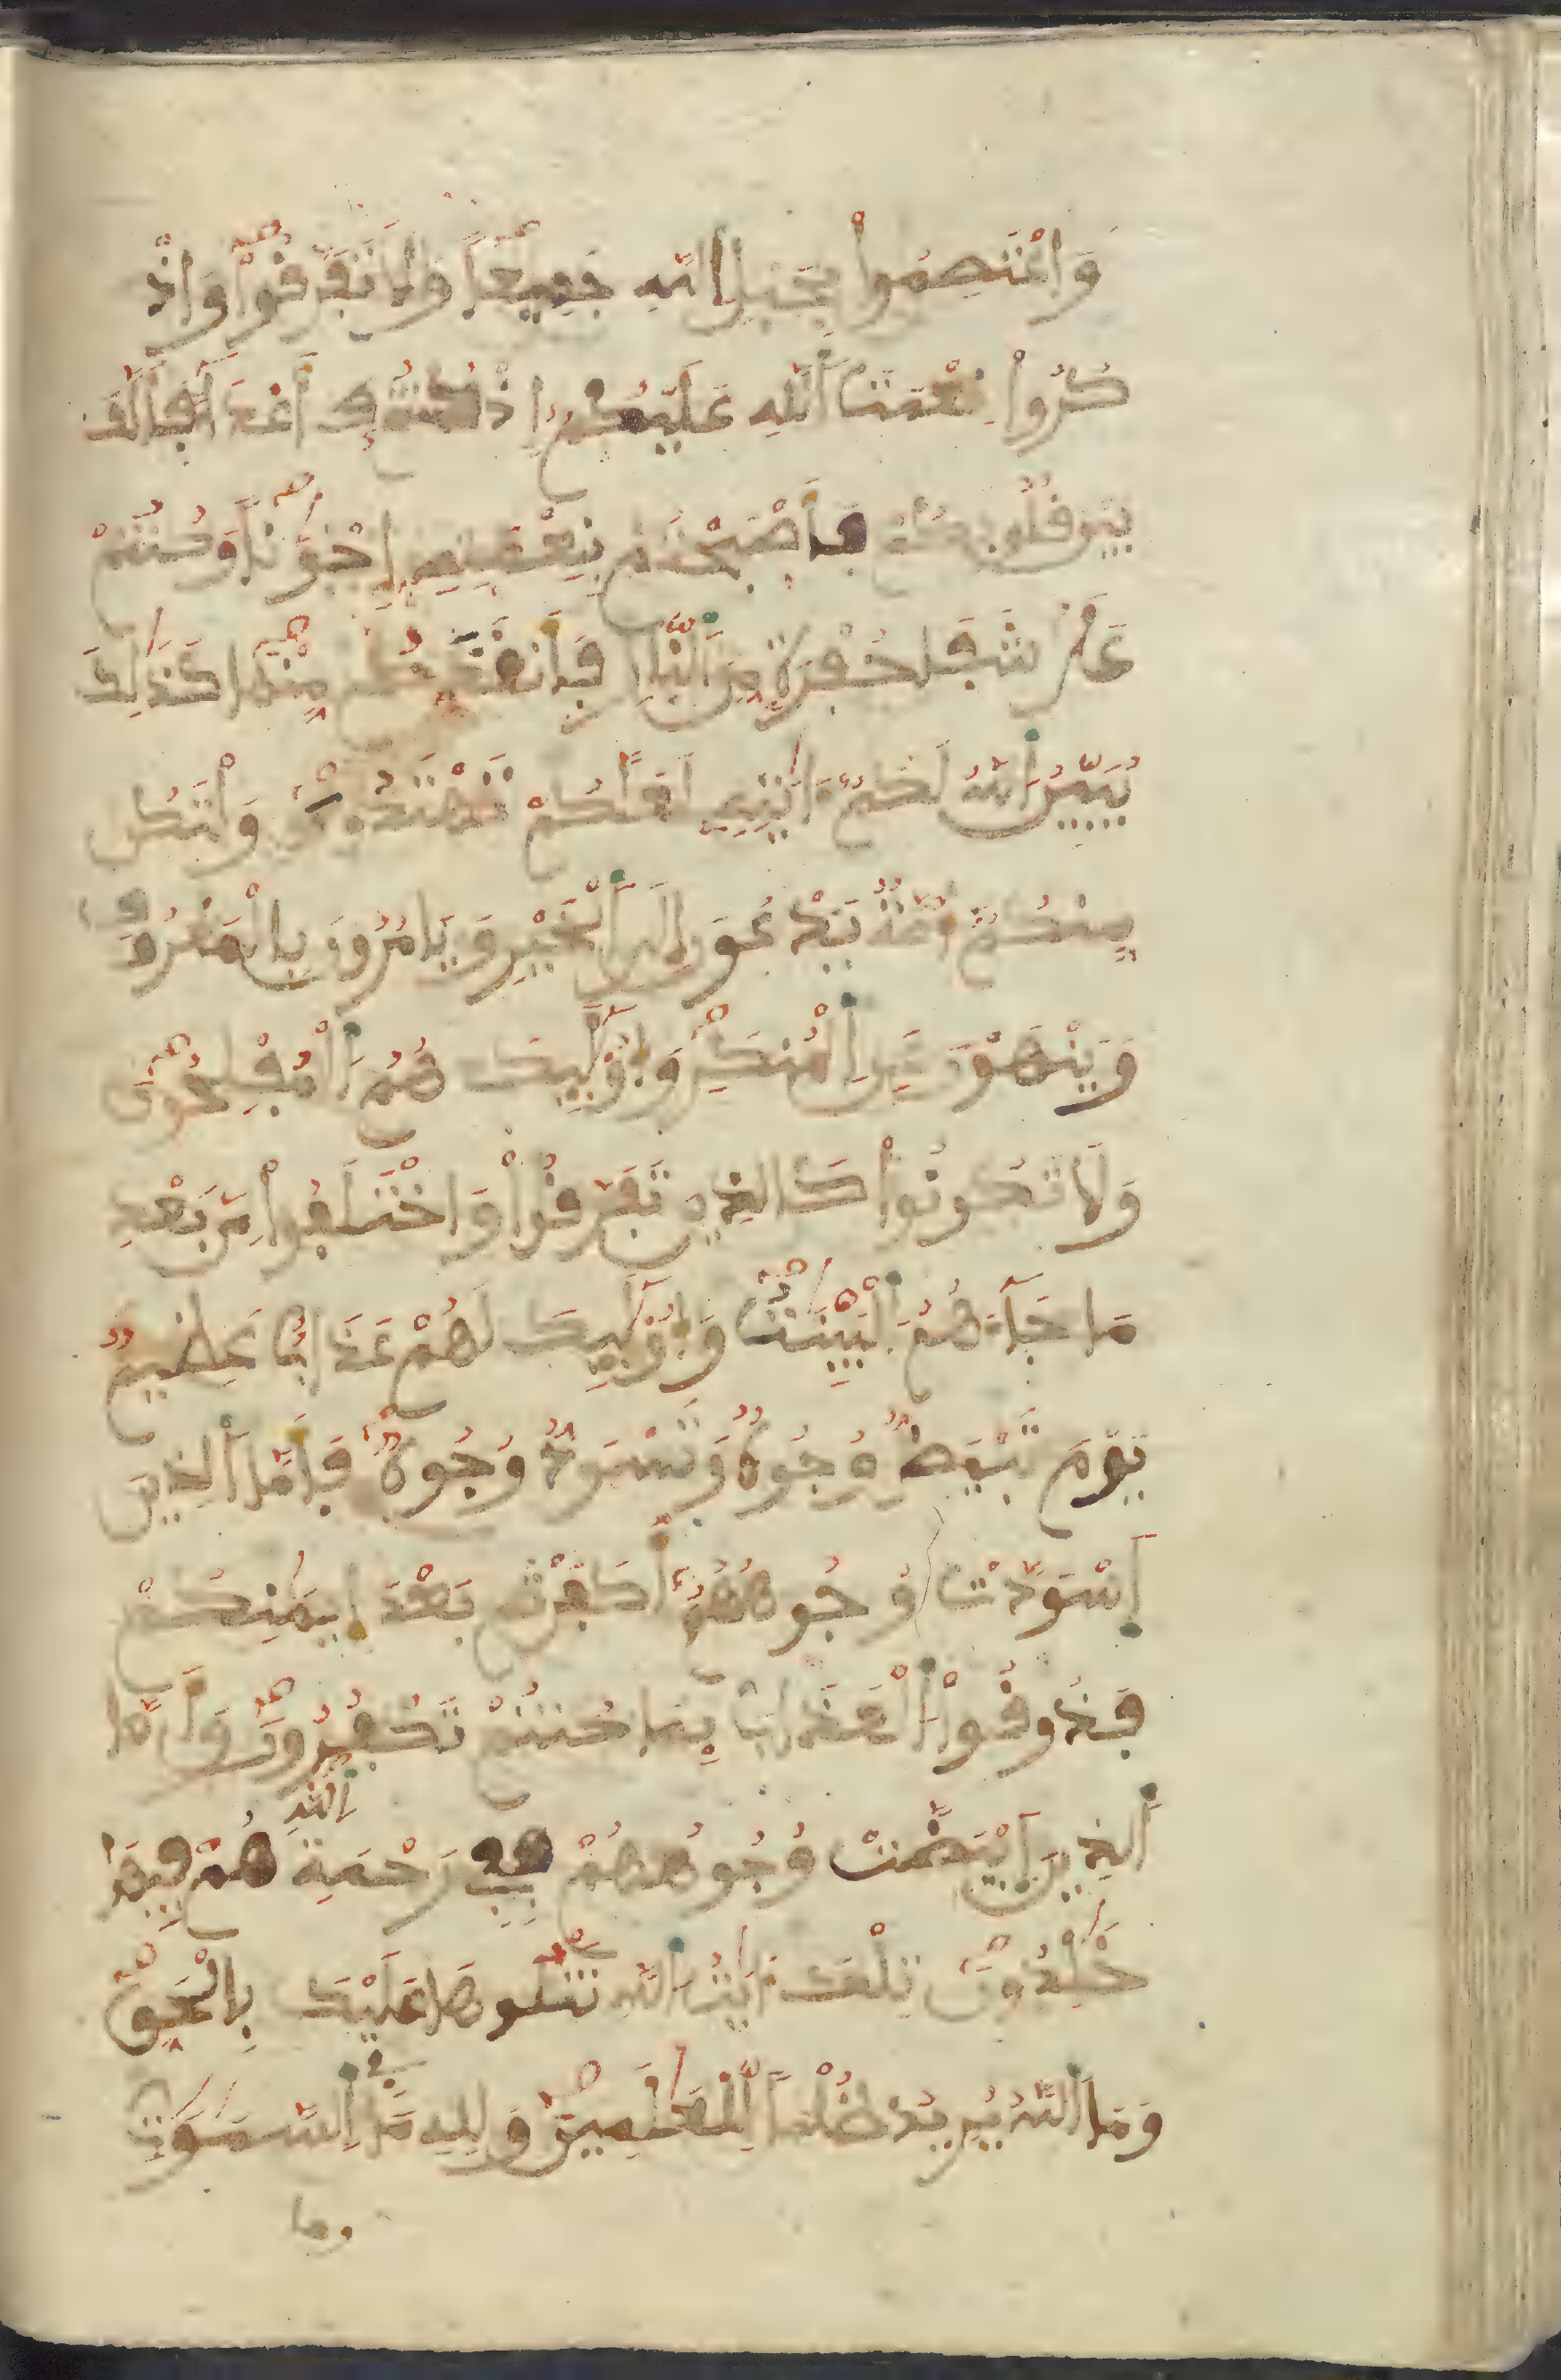 وَاعْتَصِمُواْ بِحَبْلِ اللَّهِ جَمِيعاً وَلَا تَفَرَّقُواْ وَاذْ
كُرُواْ نِعْمَتَ اَللَّهِ عَلَيْكُمُ إِذْ كُنتُمُ أَعْدَآءً فَأَلَّفَ
بَيْنَ قُلُوبِكُمْ فَأَصْبَحْتُم بِنِعْمَتِهِ إِخْوَٰناً وَكُنتُمْ
عَلَىٰ شَفَا حُفْرَةٍ مِّنَ اَلنّارِ فَأَنقَذَكُم مِّنْهَا كَذَٰلِكَ
يُبَيِّنُ اَللَّهُ لَكُمُ ءَايَٰتِهِ لَعَلَّكُمْ تَهْتَدُونَ وَلْتَكُن
مِنكُمُ أُمَّةٌ يَدْعُونَ إِلَى اَلْخَيْرِ وَيَامُرُونَ بِالْمَعْرُوفِ
وَيَنْهَوْنَ عَنِ اِلْمُنكَرِ وَأُوْلَٰٓئِكَ هُمُ اُلْمُفْلِحُونَ
وَلَا تَكُونُواْ كَالذِينَ تَفَرَّقُواْ وَاخْتَلَفُواْ مِنۢ بَعْدِ
مَا جَآءَهُمُ اُلْبَيِّنَٰتُ وَأُوْلَٰٓئِكَ لَهُمْ عَذَابٌ عَظِيمٌ
يَوْمَ تَبْيَضُّ وُجُوهٌ وَتَسْوَدُّ وُجُوهٌ فَأَمَّا اَلذِينَ
اَسْوَدَّتْ وُجُوهُهُمُ أَكَفَرْتُم بَعْدَ إِيمَٰنِكُمْ
فَذُوقُواْ اُلْعَذَابَ بِمَا كُنتُمْ تَكْفُرُونَ وَأَمَّا
اَلذِينَ اَبْيَضَّتْ وُجُوهُهُمْ فَفِي رَحْمَةِ اللَّهِ هُمْ فِيهَا
خَٰلِدُونَ تِلْكَ ءَايَٰتُ اُللَّهِ نَتْلُوهَا عَلَيْكَ بِالْحَقِّ
وَمَا اَللَّهُ يُرِيدُ ظُلْماً لِّلْعَٰلَمِينَ وَلِلهِ مَا فِي اِلسَّمَٰوَٰتِ
وما